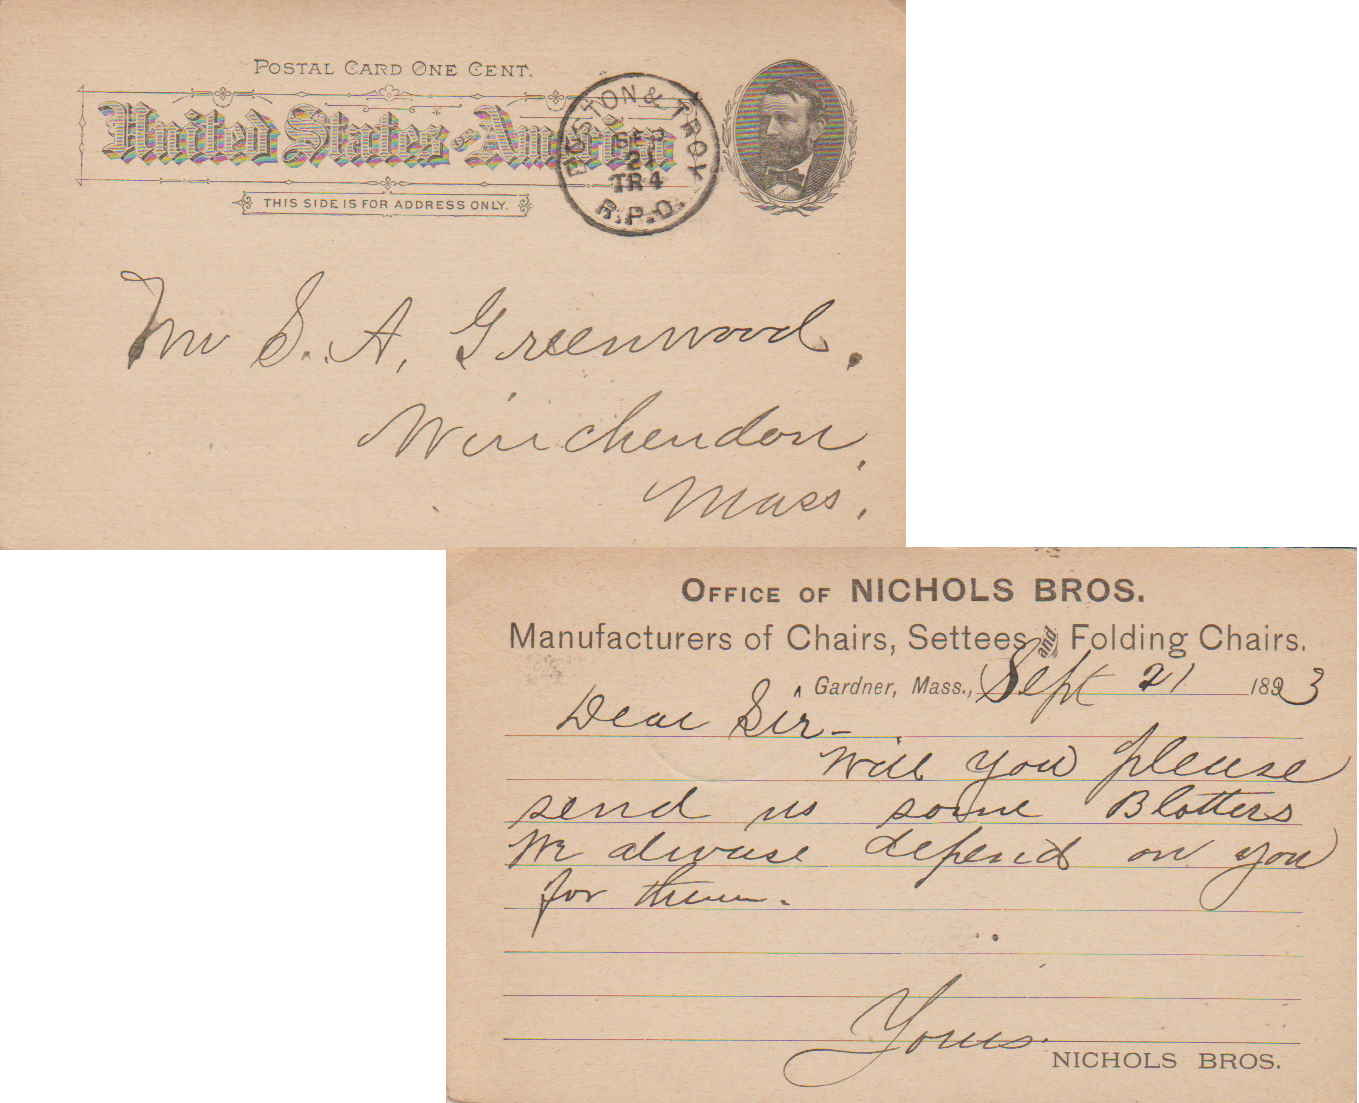 POSTAL CARD ONE CENT.
United States of America
THIS SIDE IS FOR ADDRESS ONLY.
BOSTON & TROY
SEP
21
TR 4
R.P.O.
Mr S. A. Greenwood.
Winchendon,
Mass.
OFFICE OF NICHOLS BROS.
Manufacturers of Chairs, Settees and Folding Chairs.
Gardner, Mass., Sept 21 1893
Dear Sir -
Will you please
send us some Blotters
We alwase depend on you
for them.
Yours.
NICHOLS BROS.